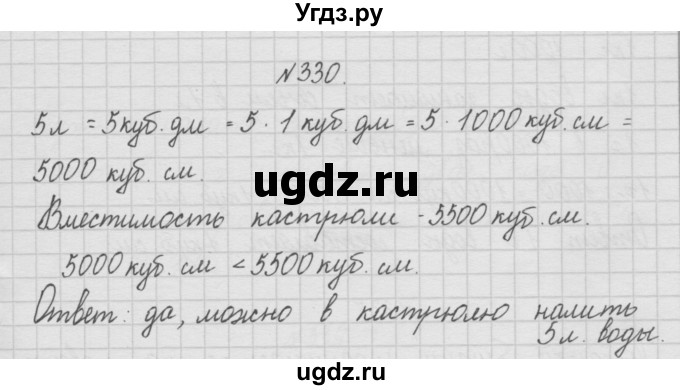 Угдз.ру
№330.
5л = 5куб.дм = 5 · 1 куб.дм = 5 · 1000 куб.см =
5000 куб. см.
Вместимость кастрюли - 5500 куб. см.
5000 куб. см < 5500 куб. см.
Ответ: да, можно в кастрюлю налить
5л. воды.
ugdz.ru
ugdz.ru
ugdz.ru